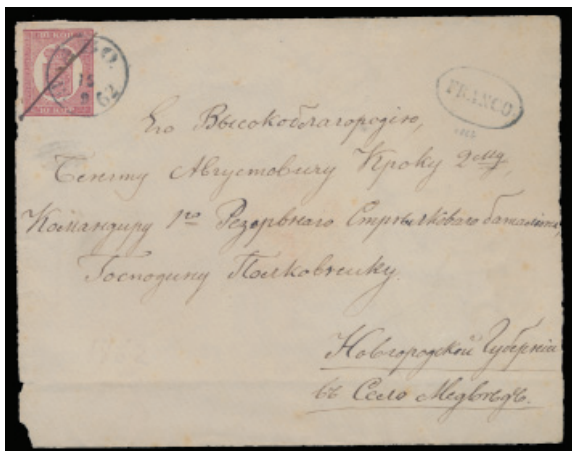 10 КОП.
15
9
62
FRANCO.
Его Высокоблагородію,
Бенгту Августовичу Кроку 2му,
Командиру 1го Резервнаго Стрѣлковаго баталіона,
Господину Полковнику.
Новгородской Губерніи
въ Село Медвѣдь.